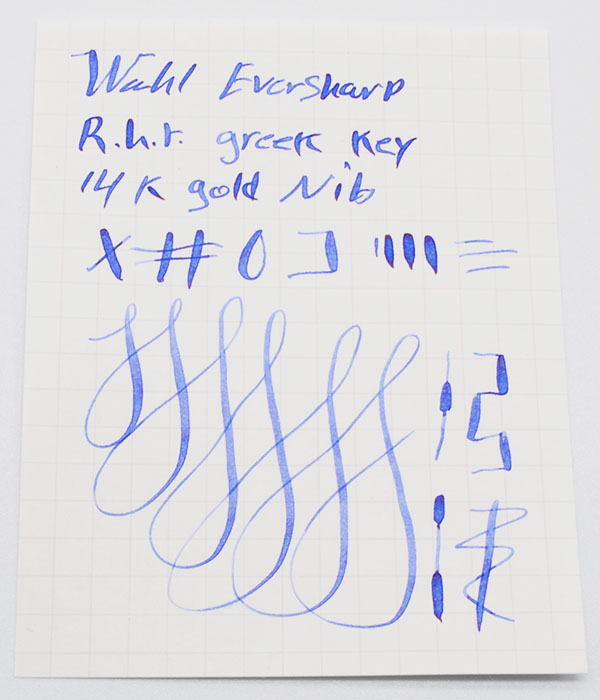 Wahl Eversharp
R.h.r. greek Key
14 K gold Nib